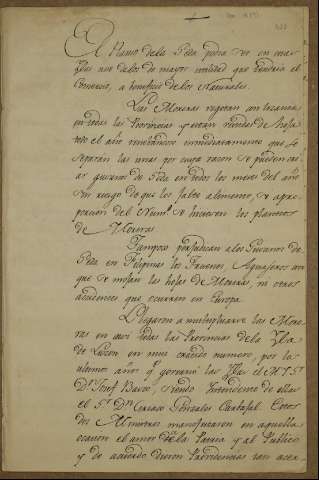 El Ramo dela Seda podra ser en estas
Yslas uno delos de mayor utilidad que tendria el
Comercio, a beneficio delos Naturales.
Las Moreras vegetan con lozania
en todas las Provincias y estan vestidas de hoja
todo el año renovandose immediatamente que se
separan las unas por cuya razon se pueden criar
gusanos de Seda en todos los meses del año
sin riesgo de que les falte alimento, si a pro-
porcion del Num.º se hicieren los planteles
de Moreras
Tampoco perjudican a los Gusanos de
Seda en Filipinas los Truenos, Aguaceros con
que se mojan las hojas de Moreras, ni otros
accidentes que ocurren en Europa.
Llegaron a multiplicarse las More-
ras en casi todas las Provincias dela Ysla
de Luzon en muy crecido numero, por los
ultimos años q.e governó las Yslas el M. Y. S.r
D.n Josef Basco, siendo Yntendente de ellas
el S.r D.n Ciriaco Gonzales Carbajal. Estos
dos Ministros manifestaron en aquella
ocasion el amor dela Patria y al Publico
y de acuerdo dieron Providencias tan acer